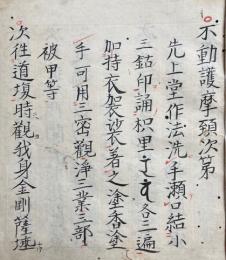 不動護摩頸次第
先上堂作法洗手瀬口結小
三鈷印誦枳里各三遍
加持衣袈裟著之塗香塗
手可用三密觀淨三業三部
被甲等
次往道塲時觀我身金剛薩埵